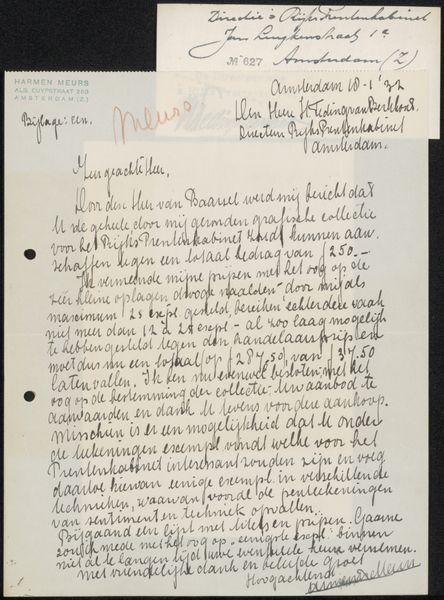 Directie's Rijks Prentenkabinet
Jan Luykenstraat 1a
No 627 Amsterdam (Z)
HARMEN MEURS
ALB. CUYPSTRAAT 253
AMSTERDAM (Z.)
Bijlage: een.
Meurs
Amsterdam 18-1'32
Den Heer H. Teding van Berkhout
Directeur Rijks Prentenkabinet
Amsterdam.
Zeer geachte Heer,
Door den Heer van werd mij bericht dat
U de geheele door mij gezonden grafische collectie
voor het Rijks Prentenkabinet zoudt kunnen aan-
schaffen tegen een totaal bedrag van f 250.-
Ik vermeende mijne prijzen met het oog op de
zeer kleine oplagen drooge naalden - door mij als
maximum 25 expl. gesteld, bereiken echter deze vaak
niet meer dan 12 à 28 expl - al zoo laag mogelijk
te hebben gesteld tegen den handelaarsprijs en
moet dus nu een totaal op f 287,50 van f 37.50
laten vallen. Ik ben nu evenwel besloten, met het
oog op de bestemming der collectie, Uw aanbod te
aanvaarden en dank U tevens voor deze aankoop.
Misschien is er een mogelijkheid dat U onder
de teekeningen exempl. vindt welke voor het
Prentenkabinet interessant zouden zijn en voeg
daartoe hiervan eenige exempl. in verschillende
technieken, waarvan vooral de penteekeningen
van sentiment en techniek opvallen.
Bijgaand een lijst met titels en prijzen. Gaarne
zou ik mede met het oog op eenigste expl. binnen
niet al te langen tijd Uwe eventueele keuze vernemen.
Met vriendelijke dank en beleefde groet
Hoogachtend
Harmen Meurs